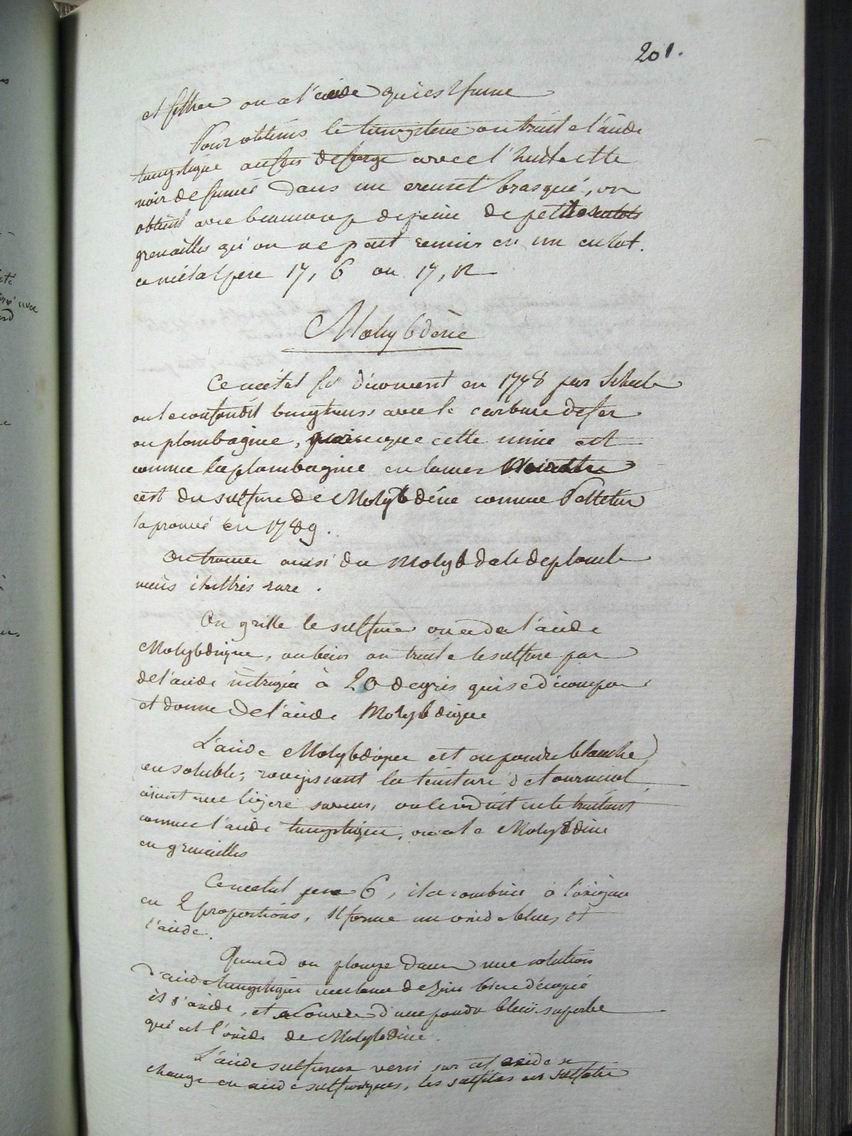 201.
et filtree on a l'acide qui est jaune
Pour obtenir le tungstene on traite l'acide
tungstique au feu de forge avec l'huile et le
noir de fumée dans un creuset brasqué, on
obtient avec beaucoup de peine de petits culots
grenailles qu'on ne peut reunir en un culot.
ce métal pese 17, 6 ou 17,
Molybdène
Ce métal fut découvert en 1778 par Scheele
on le confondit longtems avec le carbure de fer
ou plombagine, parceque cette mine est
comme la plombagine en lames
c'est du sulfure de Molybdène comme Pelletier
l'a prouvé en 1789.
On trouve aussi du Molybdate de plomb
mais il est très rare.
On grille le sulfure on a de l'acide
Molybdique, ou bien on traite le sulfure par
de l'acide nitrique à 20 degrés qui se décompose
et donne de l'acide Molybdique
L'acide Molybdique est en poudre blanche
soluble, rougissant la teinture de tournesol
aiant une légère saveur, on le réduit en le traitant
comme l'acide tungstique, on a le Molybdène
en grenailles
Ce metal pese 6, il se combine à l'oxigene
en 2 proportions, Il forme un oxide bleu et
l'acide.
Quand on plonge dans une solution
d'acide tungstique une lame de zinc bien décapé
il s'oxide, et se couvre d'une poudre bleue superbe
qui est l'oxide de Molybdène.
L'acide sulfureux versé sur cet acide se
change en acide sulfurique, les sulfites en sulfates